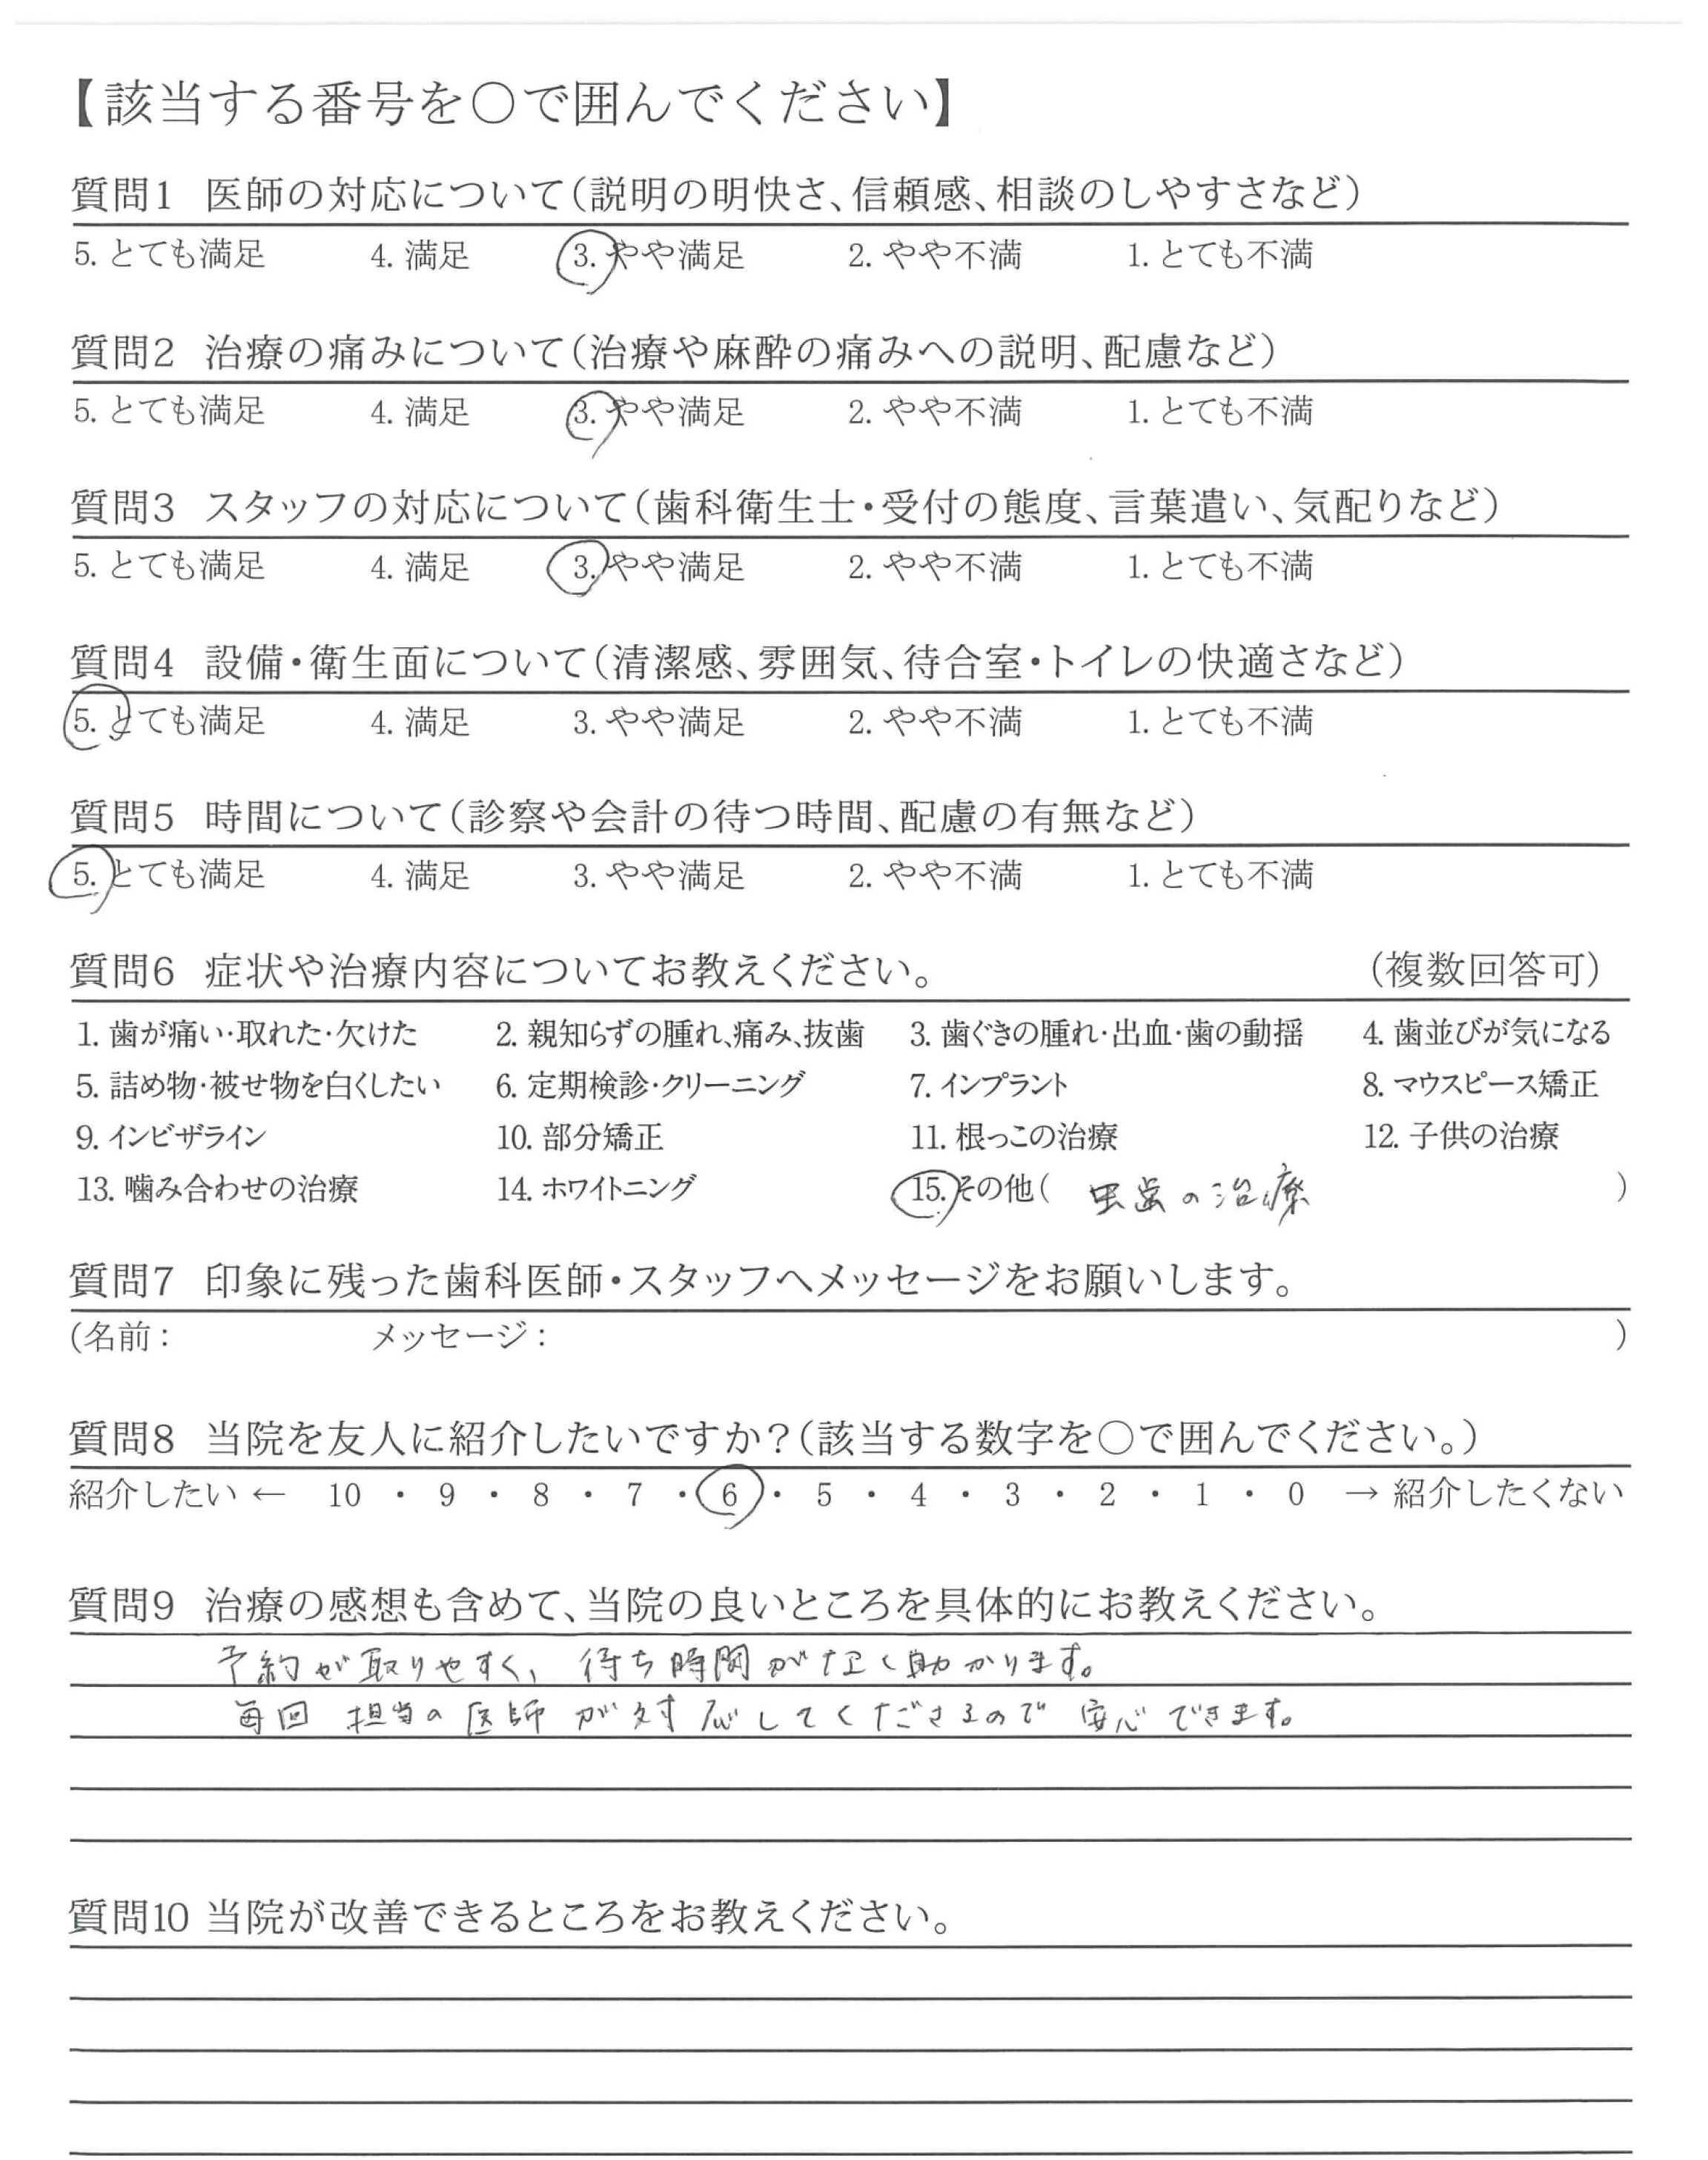 【該当する番号を〇で囲んでください】
質問1 医師の対応について(説明の明快さ、信頼感、相談のしやすさなど)
5. とても満足 4. 満足 3. やや満足 2. やや不満 1. とても不満
質問2 治療の痛みについて(治療や麻酔の痛みへの説明、配慮など)
5. とても満足 4. 満足 3. やや満足 2. やや不満 1. とても不満
質問3 スタッフの対応について(歯科衛生士・受付の態度、言葉遣い、気配りなど)
5. とても満足 4. 満足 3. やや満足 2. やや不満 1. とても不満
質問4 設備・衛生面について(清潔感、雰囲気、待合室・トイレの快適さなど)
5. とても満足 4. 満足 3. やや満足 2. やや不満 1. とても不満
質問5 時間について(診察や会計の待つ時間、配慮の有無など)
5. とても満足 4. 満足 3. やや満足 2. やや不満 1. とても不満
質問6 症状や治療内容についてお教えください。 (複数回答可)
1. 歯が痛い・取れた・欠けた 2. 親知らずの腫れ、痛み、抜歯 3. 歯ぐきの腫れ・出血・歯の動揺 4. 歯並びが気になる
5. 詰め物・被せ物を白くしたい 6. 定期検診・クリーニング 7. インプラント 8. マウスピース矯正
9. インビザライン 10. 部分矯正 11. 根っこの治療 12. 子供の治療
13. 噛み合わせの治療 14. ホワイトニング 15. その他( 虫歯の治療 )
質問7 印象に残った歯科医師・スタッフへメッセージをお願いします。
(名前: メッセージ: )
質問8 当院を友人に紹介したいですか?(該当する数字を〇で囲んでください。)
紹介したい ← 10 ・ 9 ・ 8 ・ 7 ・ 6 ・ 5 ・ 4 ・ 3 ・ 2 ・ 1 ・ 0 → 紹介したくない
質問9 治療の感想も含めて、当院の良いところを具体的にお教えください。
予約が取りやすく、待ち時間がなく助かります。
毎回 担当の医師が対応してくださるので安心できます。
質問10 当院が改善できるところをお教えください。